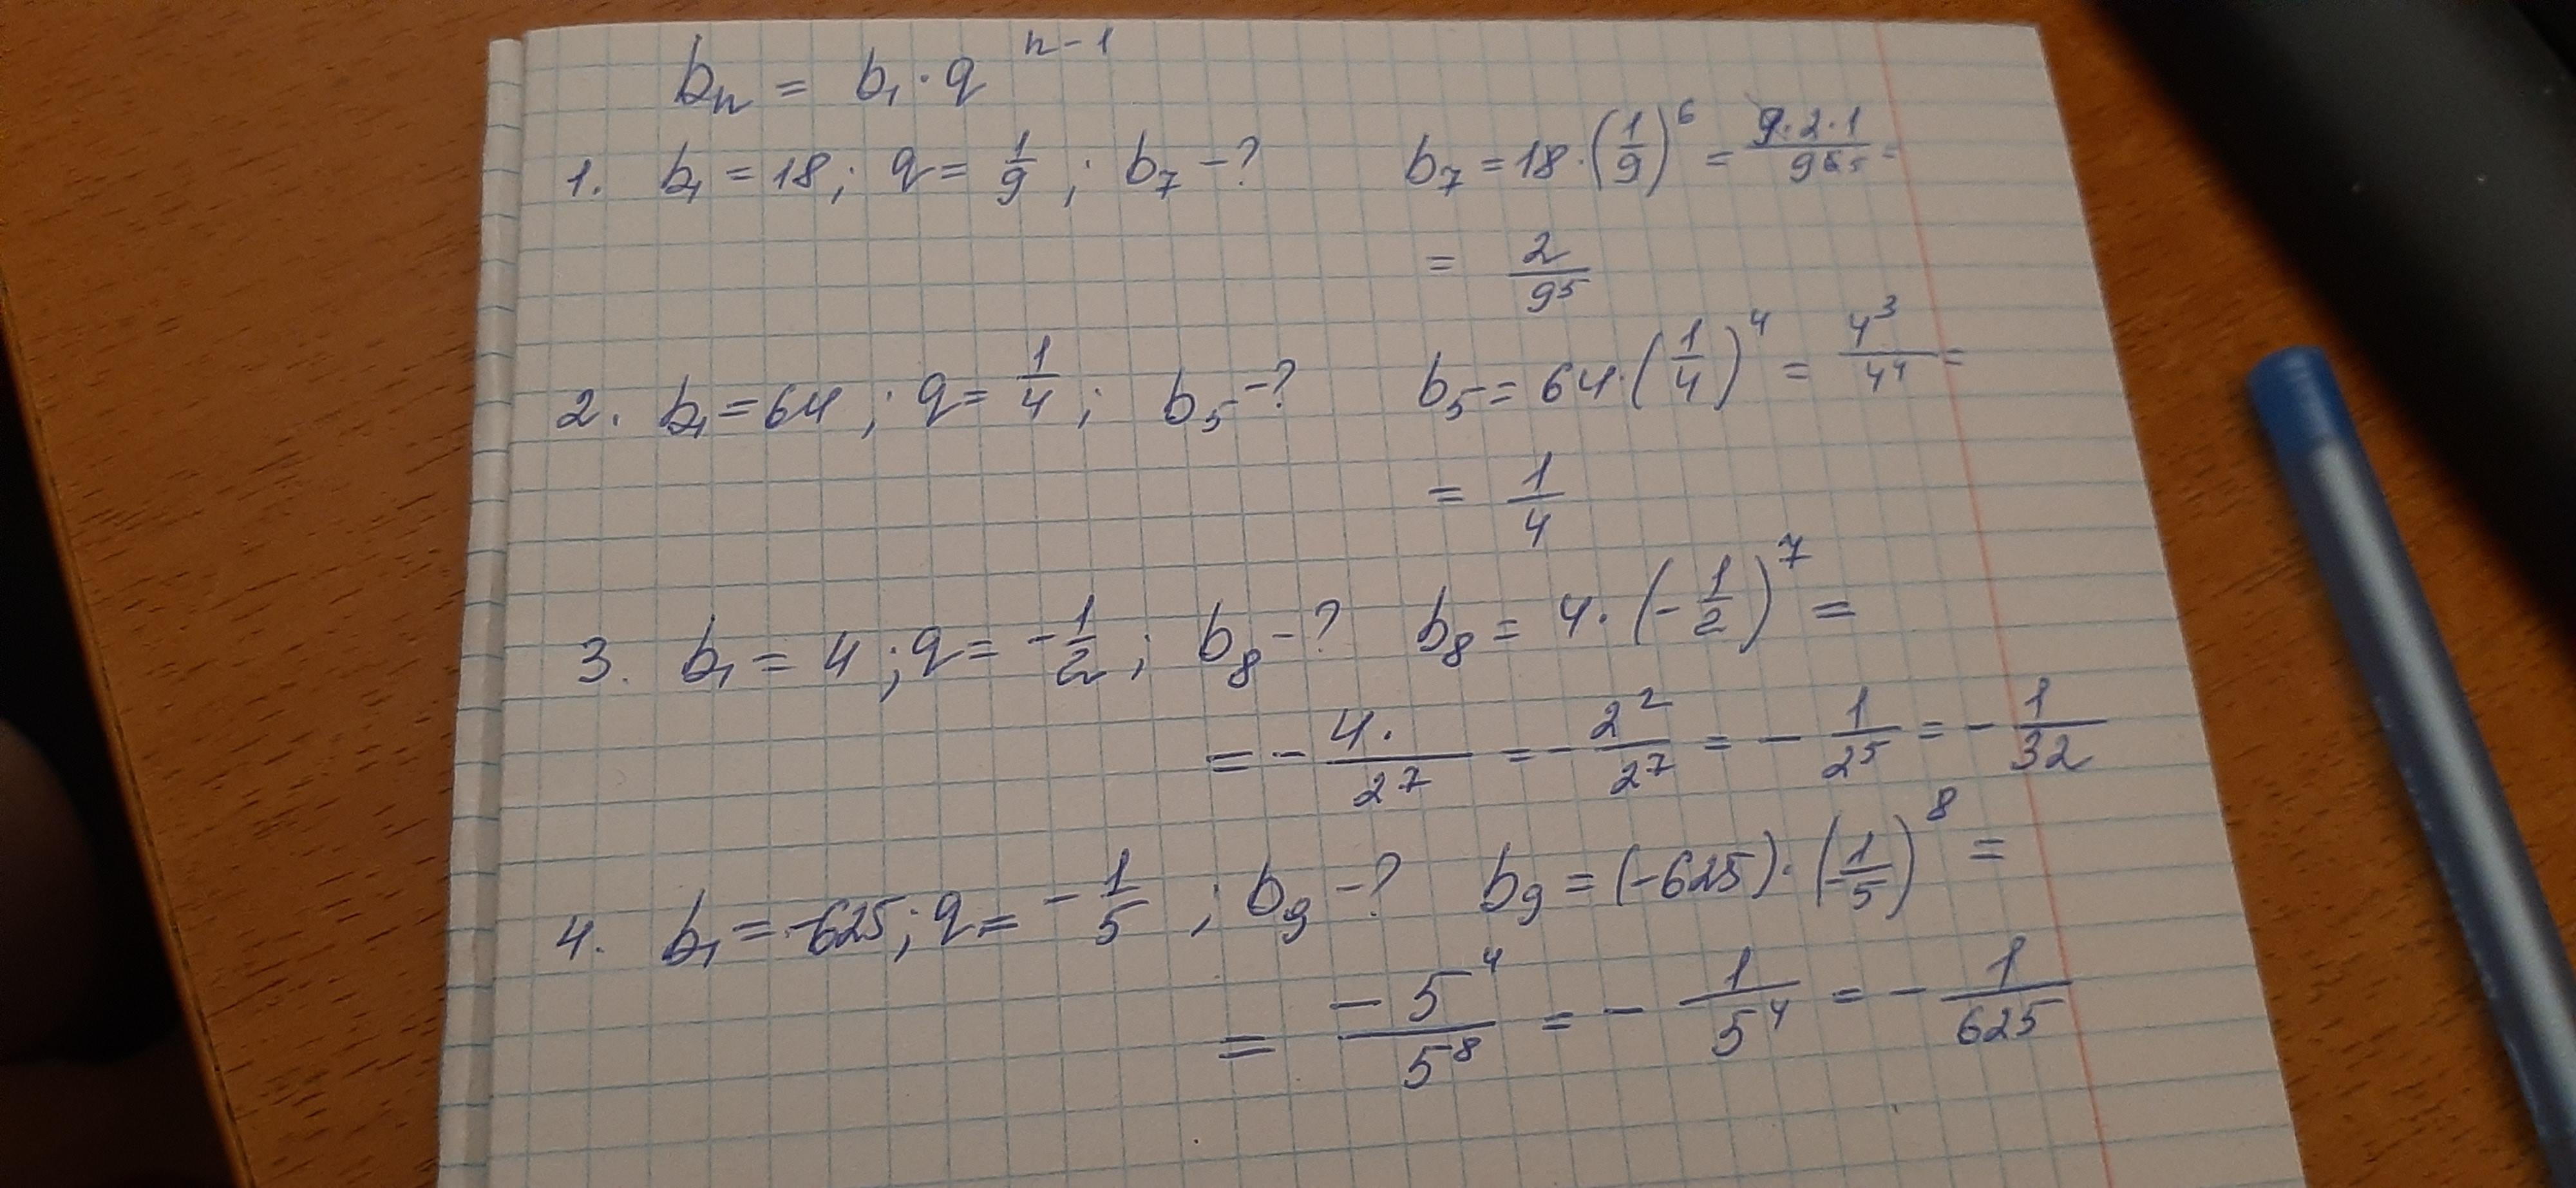 bₙ = b₁ · q ⁿ⁻¹
1. b₁ = 18; q = 1/9; b₇ - ? b₇ = 18 · (1/9)⁶ = 9·2·1/9⁶ ⁵ =
= 2/9⁵
2. b₁ = 64; q = 1/4; b₅ - ? b₅ = 64 · (1/4)⁴ = 4³/4⁴ =
= 1/4
3. b₁ = 4; q = -1/2; b₈ - ? b₈ = 4 · (-1/2)⁷ =
= - 4·/2⁷ = - 2²/2⁷ = - 1/2⁵ = - 1/32
4. b₁ = -625; q = -1/5; b₉ - ? b₉ = (-625) · (-1/5)⁸ =
= -5⁴/5⁸ = - 1/5⁴ = - 1/625